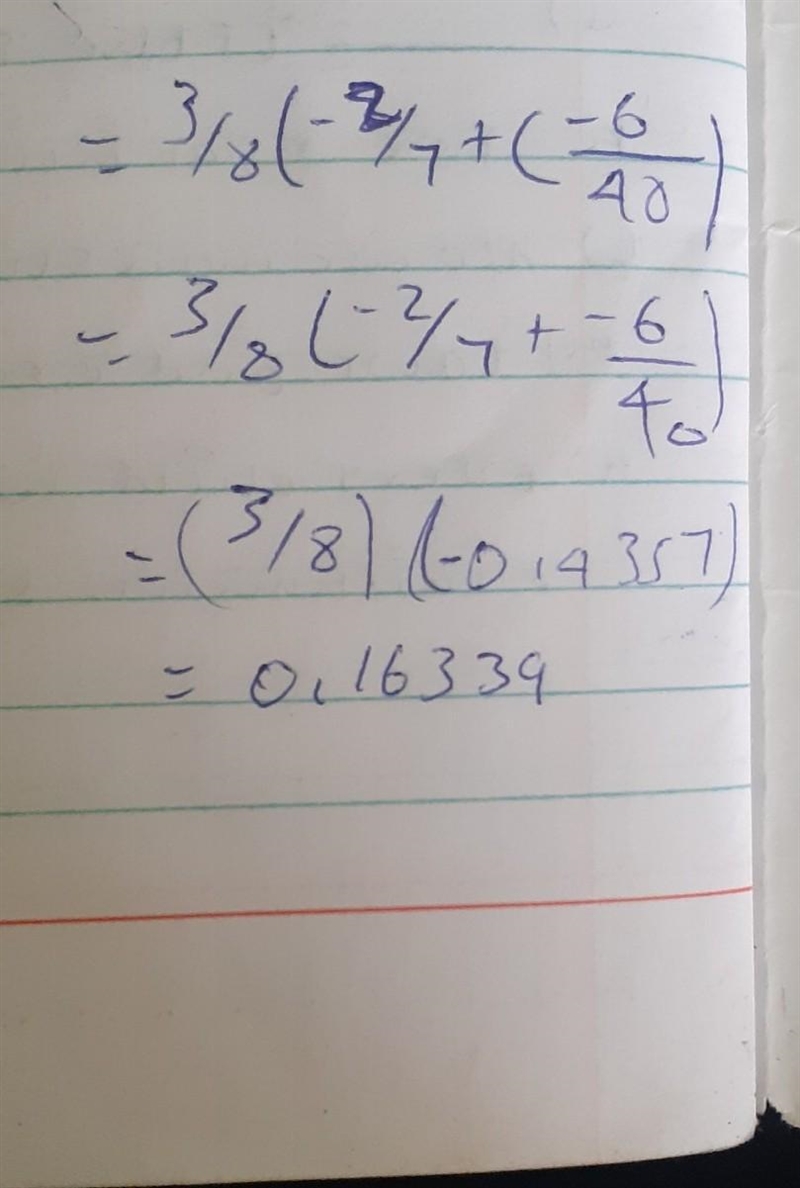 = 3/8(-2/7+(-6/40)
= 3/8(-2/7+-6/40)
=(3/8)(-0.4357)
= 0.16339